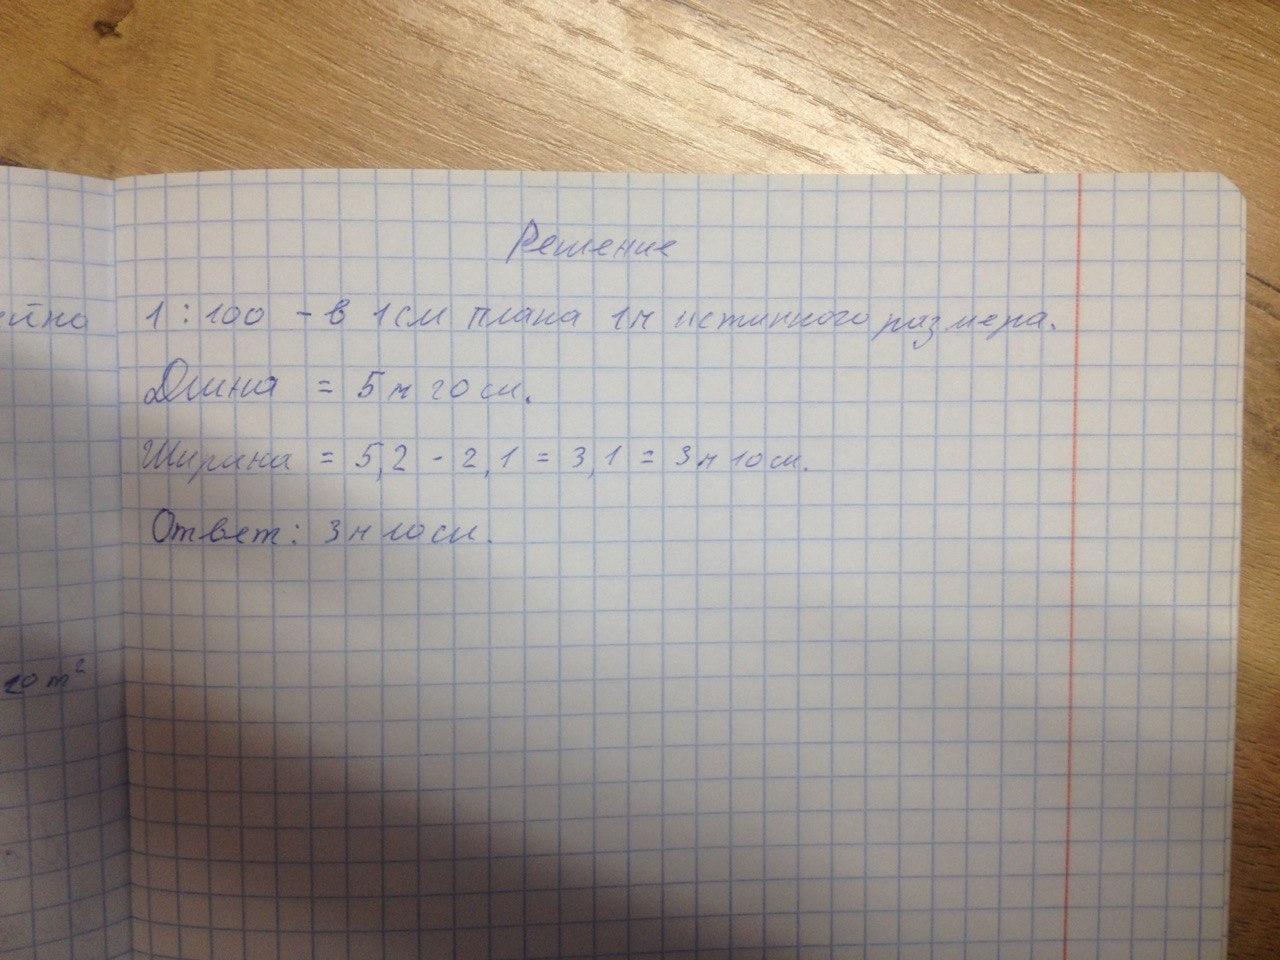 Решение
ейно 1:100 - в 1 см плана 1м истинного размера.
Длина = 5м 20 см.
Ширина = 5,2 - 2,1 = 3,1 = 3м 10 см.
Ответ: 3м 10 см.
20 m²